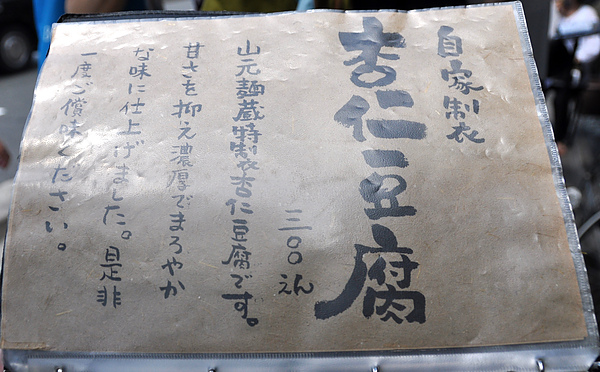 自家製衣
杏仁豆腐
三〇〇えん
山元麺蔵特製衣杏仁豆腐です。
甘さを抑え濃厚でまろやか
な味に仕上げました。是非
一度ご償味ください。